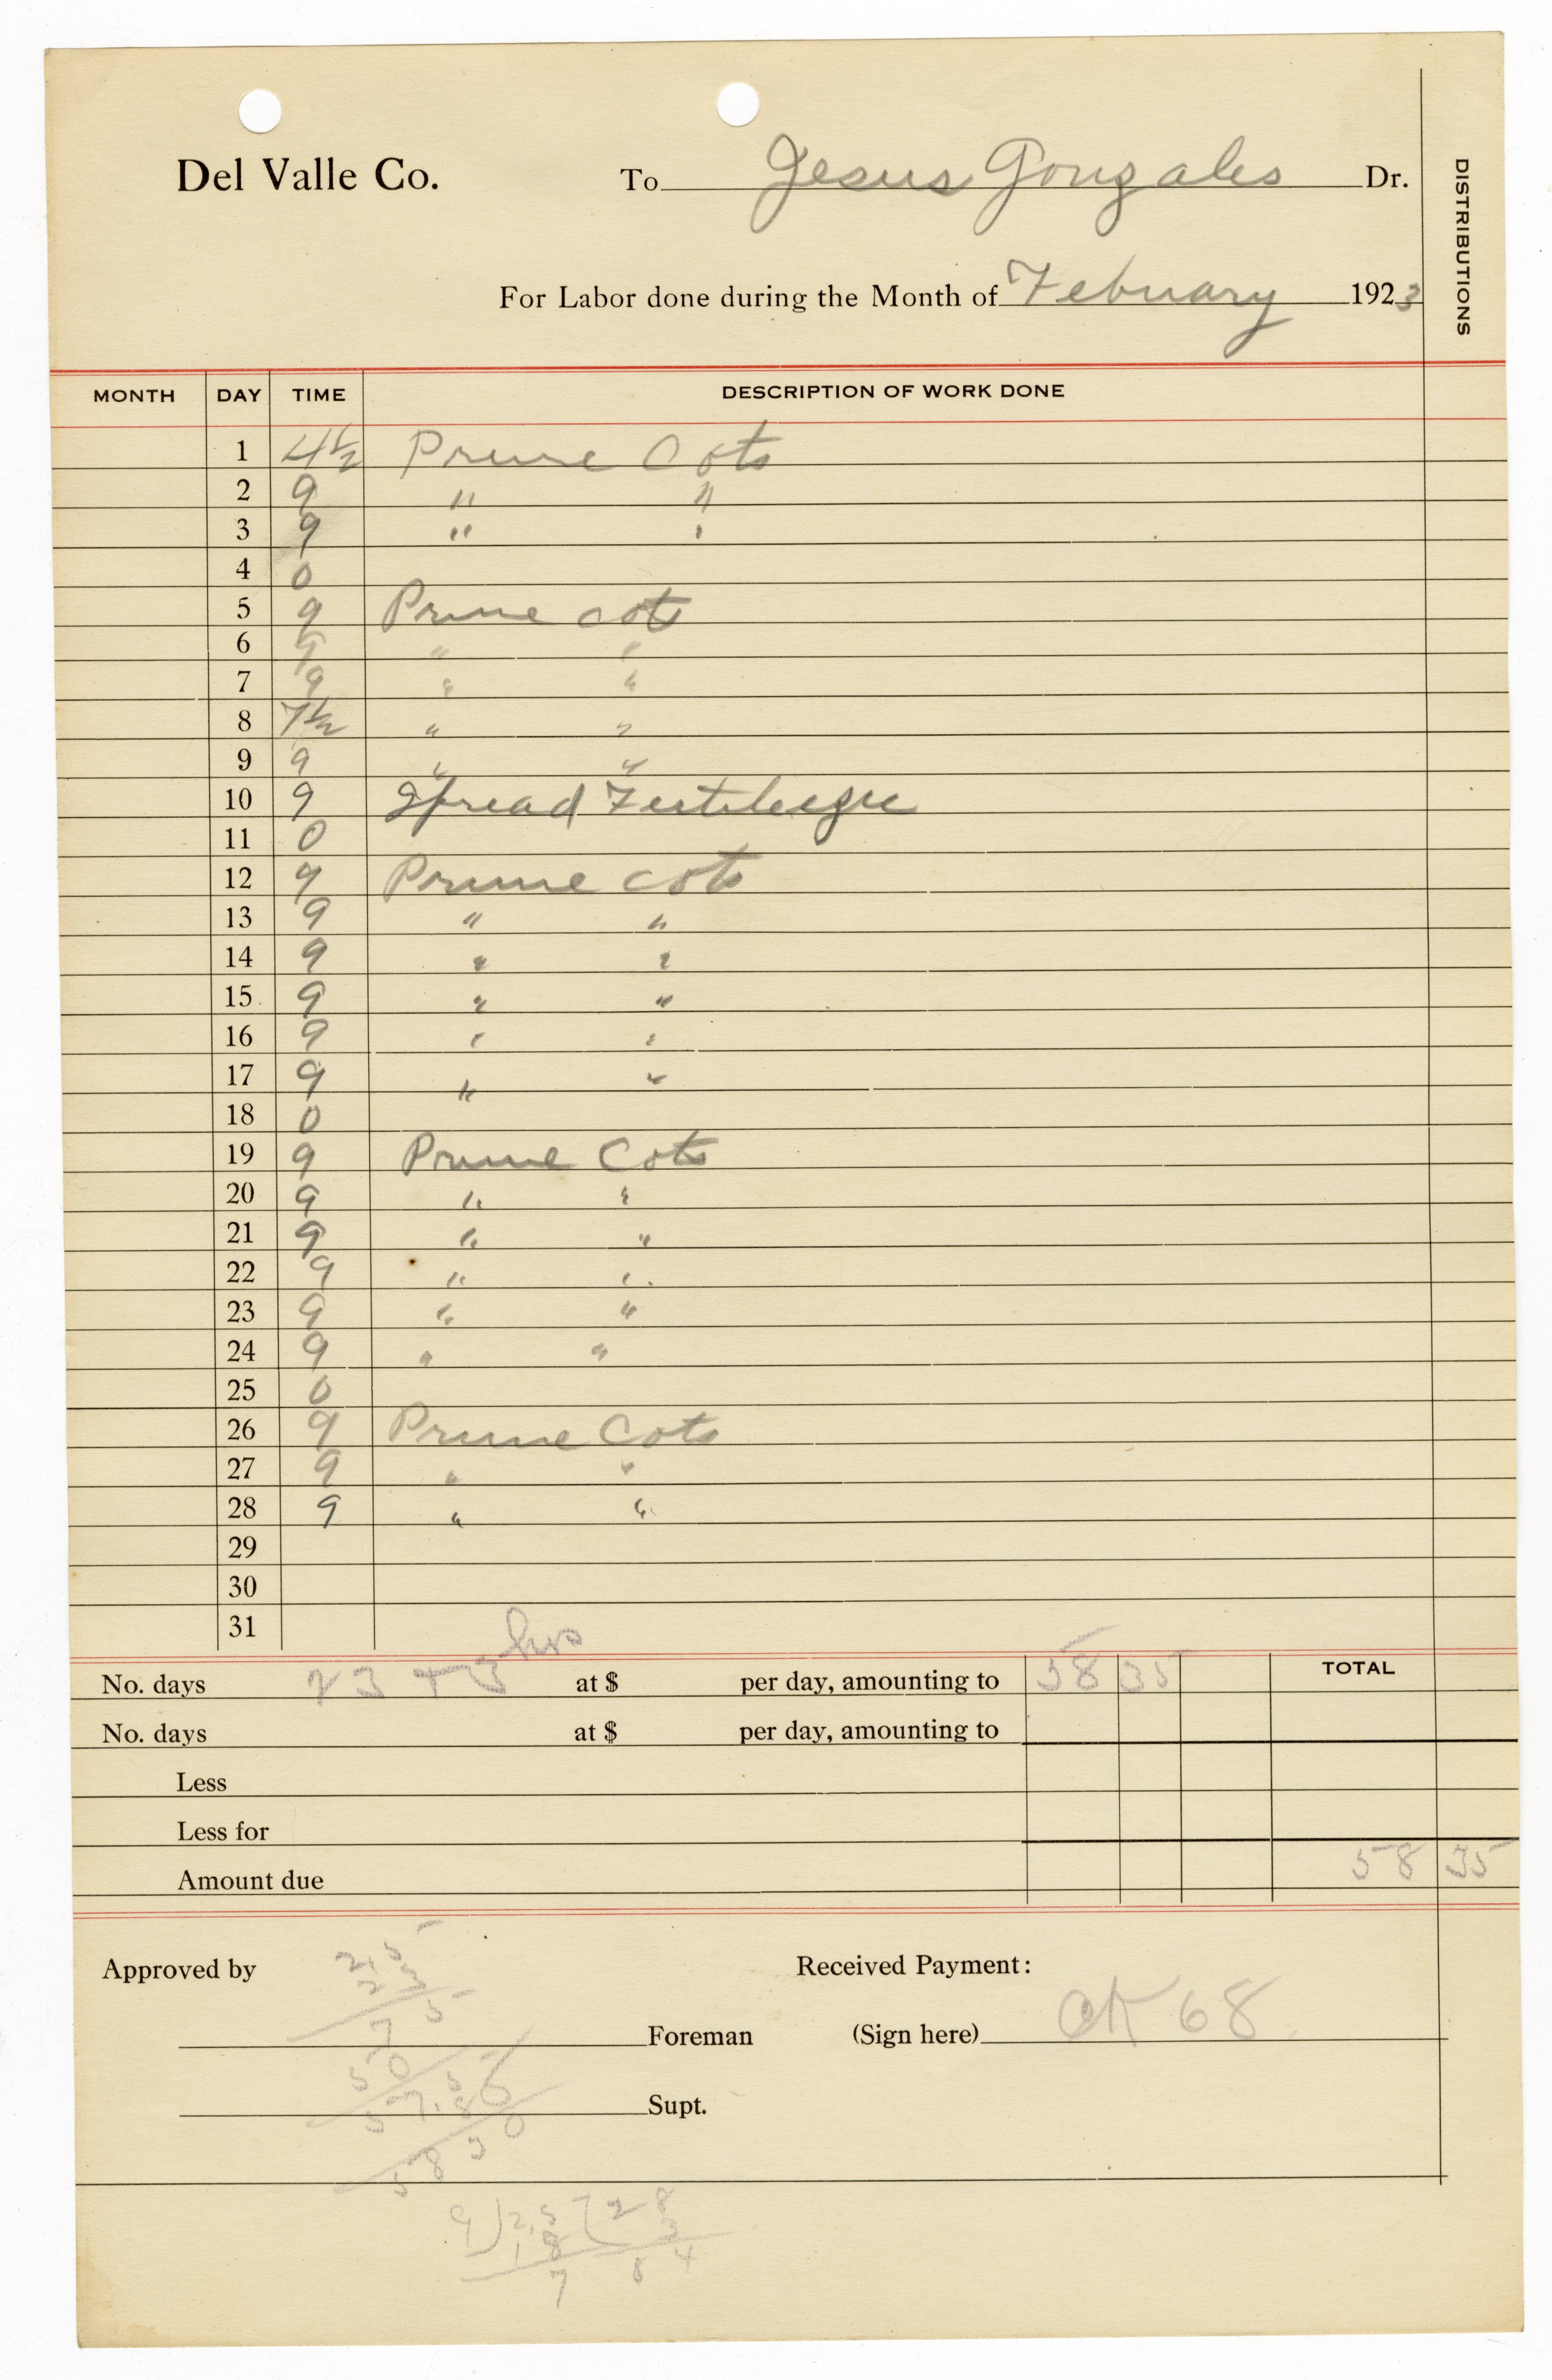 Del Valle Co. To Jesus Gonzales Dr.
DISTRIBUTIONS
For Labor done during the Month of Febuary 1923
MONTH DAY TIME DESCRIPTION OF WORK DONE
1 4½ Prune Cots
2 9 " "
3 9 " "
4 0
5 9 Prune cots
6 9 " "
7 9 " "
8 7½ " "
9 9 " "
10 9 Spread Fertilezre
11 0
12 9 Prune cots
13 9 " "
14 9 " "
15 9 " "
16 9 " "
17 9 " "
18 0
19 9 Prune Cots
20 9 " "
21 9 " "
22 9 " "
23 9 " "
24 9 " "
25 0
26 9 Prune Cots
27 9 " "
28 9 " "
29
30
31
No. days 23 + 3 hrs at $ per day, amounting to 58 35 TOTAL
No. days at $ per day, amounting to
Less
Less for
Amount due 58 35
Approved by Received Payment:
Foreman (Sign here) CK 68
Supt.